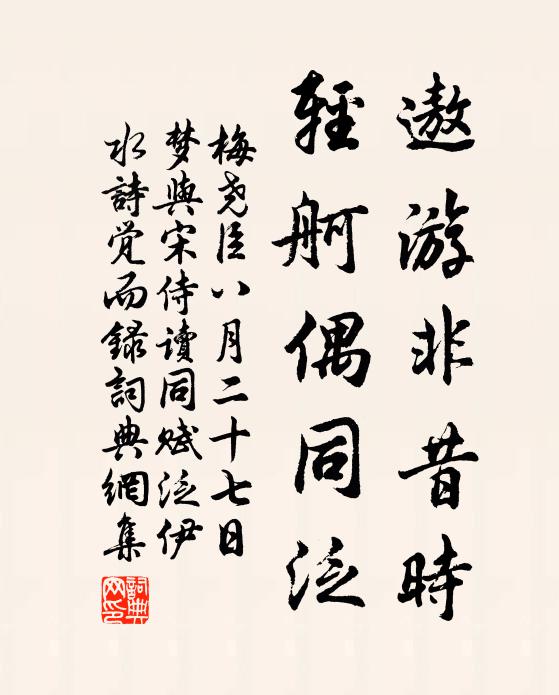 遨游非昔時
輕舸偶同泛
梅尧臣八月二十七日
梦與宋侍讀同赋泛伊
水詩觉而錄詞典網集
詞典网印